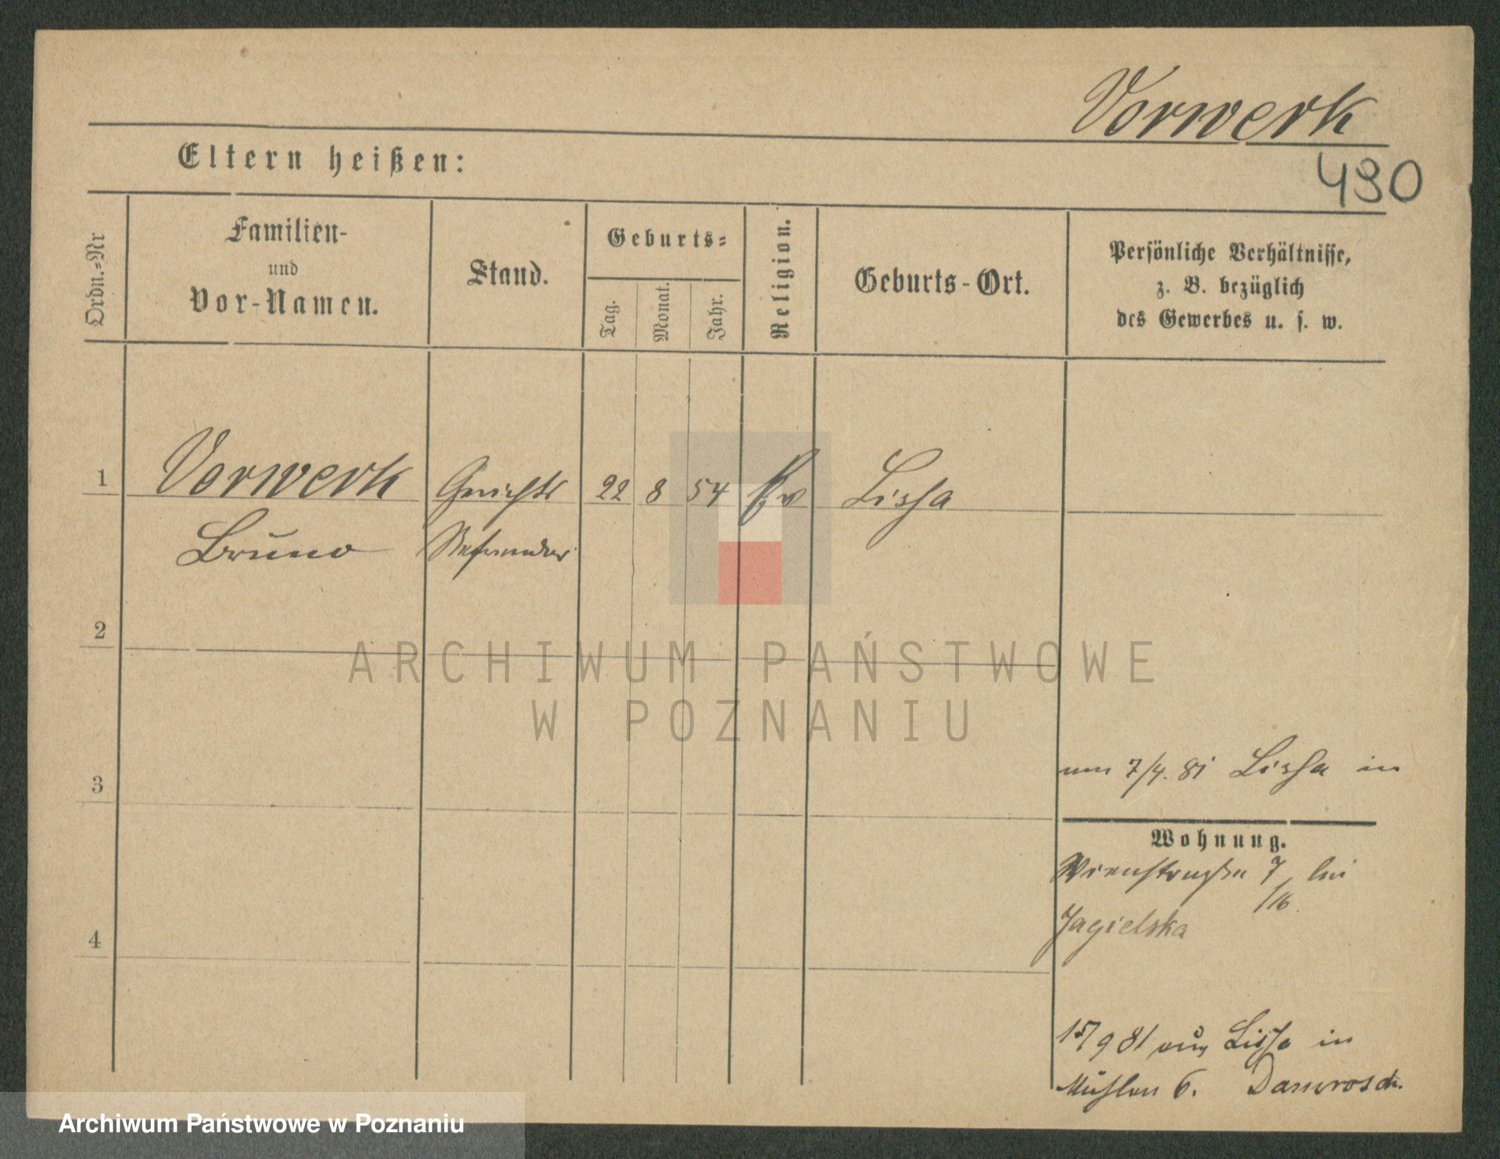 Vorwerk
490
Eltern heißen:
Ordn.=Nr
Familien-
und
Vor-Namen.
Stand.
Geburts=
Tag.
Monat.
Jahr.
Religion.
Geburts-Ort.
Persönliche Verhältnisse,
z. B. bezüglich
des Gewerbes u. s. w.
1 Vorwerk Gerichts 22 8 54 Ev Lissa
Bruno Referendar
2
3
4
7/4. 81 Lissa in
Wohnung.
7/16 bei
Jagielska
15/9 81 aus Lissa in
Mühlen 6. Damrosch.
ARCHIWUM PAŃSTWOWE
W POZNANIU
Archiwum Państwowe w Poznaniu